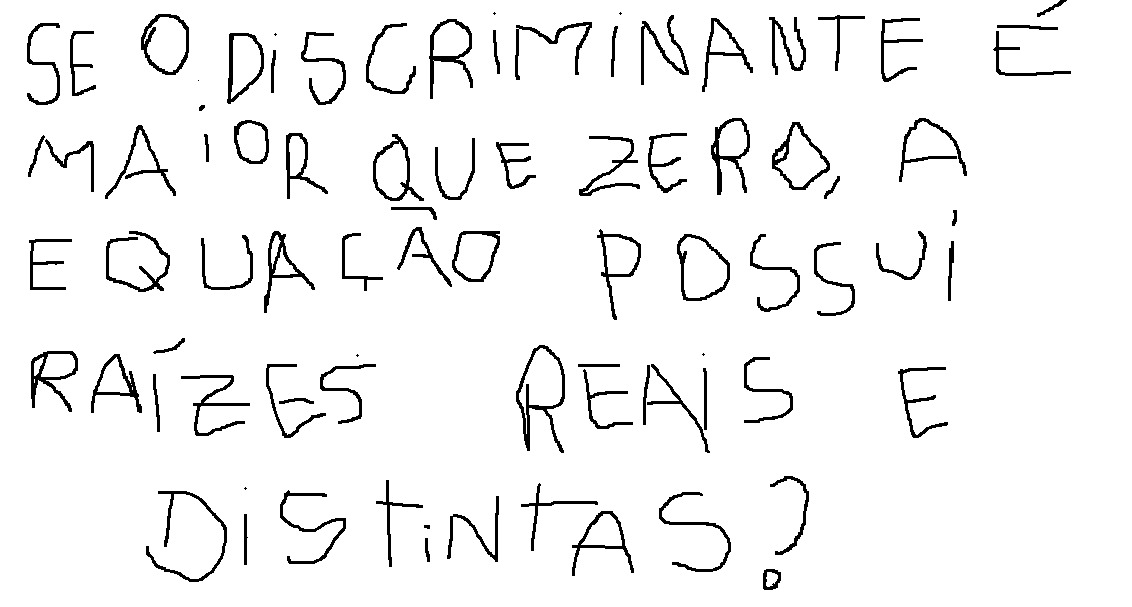 SE O DISCRIMINANTE É
MAIOR QUE ZERO, A
EQUAÇÃO POSSUI
RAÍZES REAIS E
DISTINTAS?